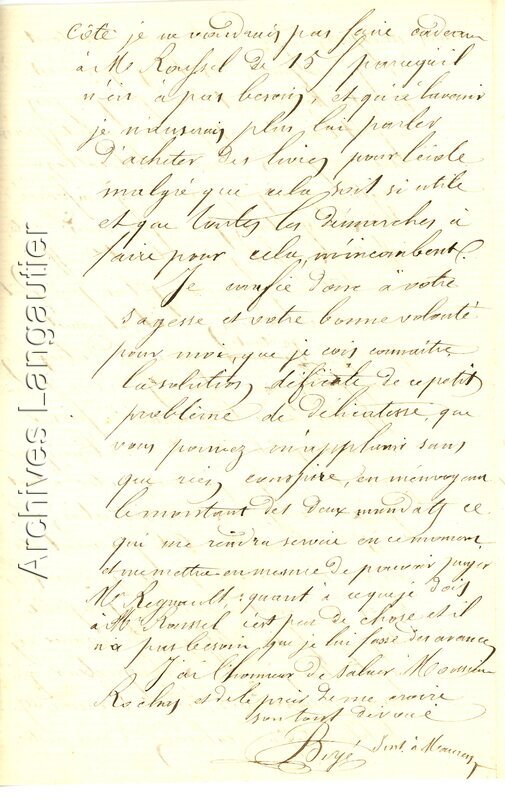 côté je ne voudrais pas faire cadeau
à Mr Roussel de 15 parcequ'il
n'en a pas besoin, et qu'à l'avenir
je n'oserais plus lui parler
d'acheter des livres pour l'école
malgré que cela soit si utile
et que toutes les démarches à
faire pour cela, m'incombent.
Je confie donc à votre
sagesse et votre bonne volonté
pour moi, que je crois connaître
la solution difficile de ce petit
problème de délicatesse, que
vous pouvez m'applanir sans
que rien conspire, en m'envoyant
le montant des deux mandats ce
qui me rendra service en ce moment
et me mettra en mesure de pouvoir payer
Mr Regnault; quant à ce que je dois
à Mr Roussel c'est peu de chose et il
n'a pas besoin que je lui fasse des avances
J'ai l'honneur de saluer Monsieur
et de le prier de me croire
son tout dévoué
Inst. à
Archives Langautier